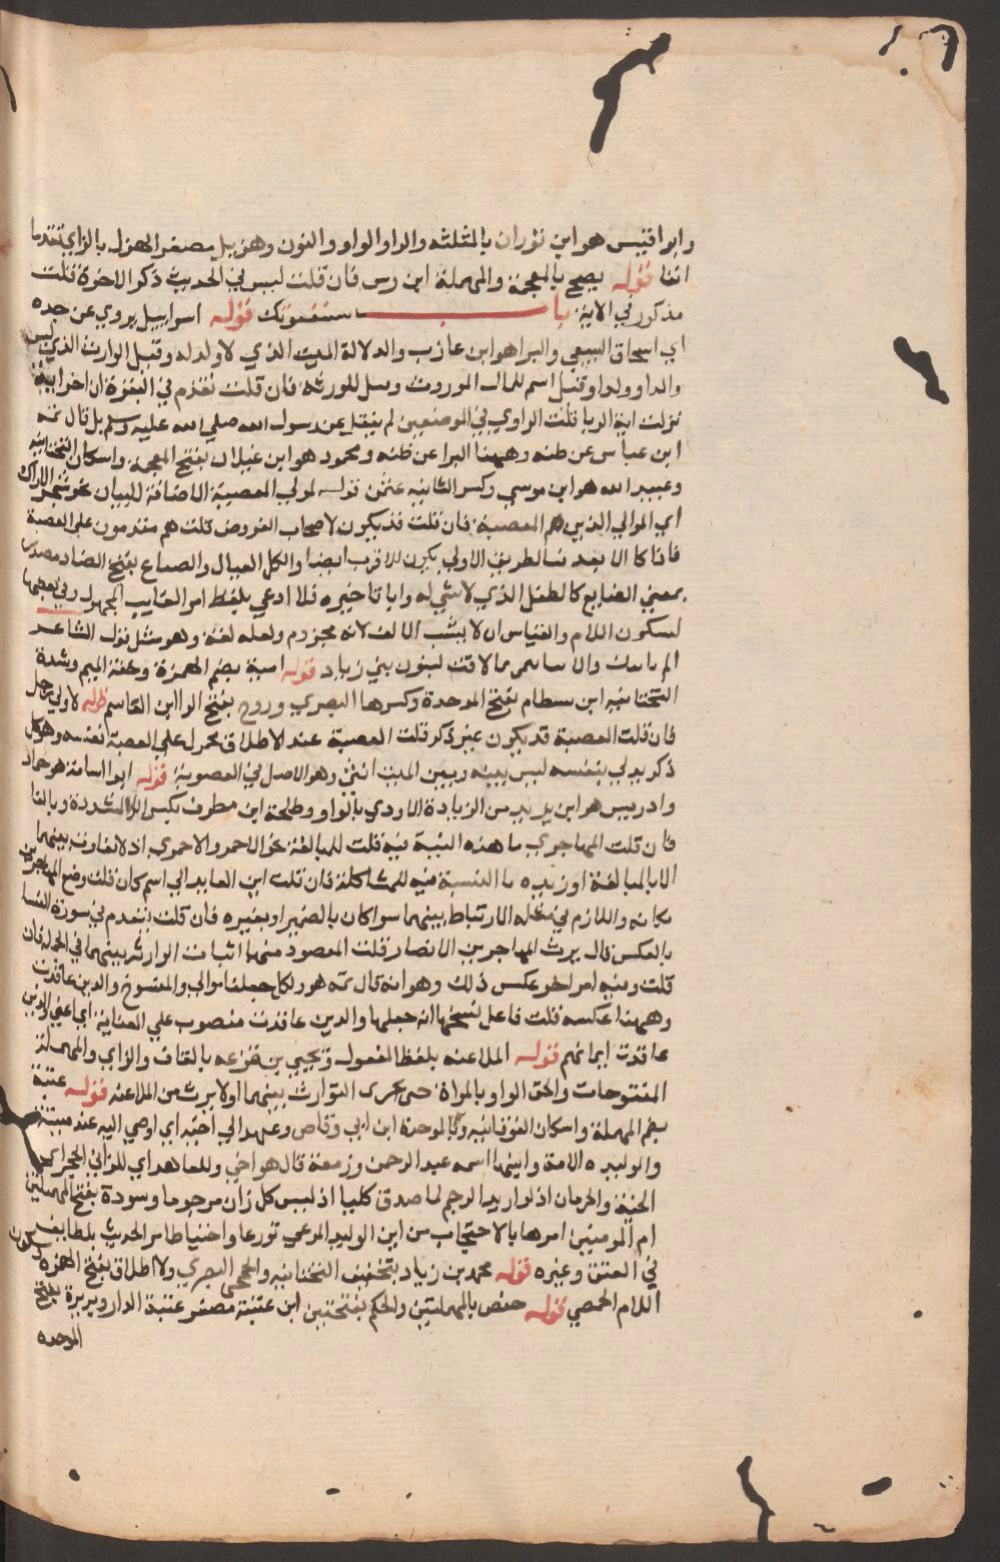 وابو اقيس هو ابن ثوران بالمثلثه والرا والواو والنون وهزيل مصغر الهزل بالزاي تقدما
انفا قوله يصح بالمعجمة والمهملة ابن رس فان قلت ليس في الحديث ذكر الاخوة قلت
مذكور في الاية باب يستفتونك قوله اسراييل يروي عن جده
ابي اسحاق السبيعي والبرا هو ابن عازب والدلالة الميت الذي لا ولد له وقيل الوارث الذي ليس
والدا وولدا وقيل اسم للمال الموروث وسل للورثه فان قلت تقدم في البقرة ان اخر اية
نزلت اية الربا قلت الراوي في الموضعين لم ينقل عن رسول الله صلي الله عليه وسلم بل قال ثمه
ابن عباس عن ظنه وههنا البرا عن ظنه ومحمود هو ابن غيلان بفتح المعجمة واسكان التحتانيه
وعبيد الله هو ابن موسي وكسر الثانيه عثمن قوله لموالي العصبة الاضافة للبيان نحو شجر الاراك
اي الموالي الذين هم العصبة فان قلت قد يكون لاصحاب الفروض قلت هم مقدمون علي العصبة
فاذا كا الابعد بالطريق الاولي يكون للاقرب ايضا والكل العيال والضياع بفتح الضاد مصدر
بمعني الضايع كالطفل الذي لا شي له وابا تاخيره فلا ادعي بلفظ امر الغايب المجهول وفي بعضها
بسكون اللام والقياس ان لا يثبت الالف لانه مجزوم ولعله لغة وهو مثل قول الشاعر
الم ياتيك والانبا تنمي بما لاقت لبون بني زياد قوله امية بضم الهمزة وخفة الميم وشدة
التحتانيه ابن بسطام بفتح الموحدة وكسرها البصري وروح بفتح الرا ابن القاسم قوله لاولي رجل
فان قلت العصبة قد يكون غير ذكر قلت العصبة عند الاطلاق محمول علي العصبة بنفسه وهو كل
ذكر يدلي بنفسه ليس بينه وبين الميت انثي وهو الاصل في العصوبة قوله ابو اسامة هو حماد
وادريس هو ابن يزيد من الزيادة الاودي بالواو وطلحة ابن مطرف بكسر الرا المشددة وبالفا
فان قلت المهاجري ما هذه النسبة فيه قلت للمبالغة نحو الاحمر والاحمري اذ لا تفاوت بينهما
الا بالمبالغة او زيده يا النسبة فيه للمشاكلة فان قلت ابن العايد الي اسم كان قلت وضع المهاجرين
مكانه واللازم في مثله الارتباط بينهما سوا كان بالضمير او بغيره فان قلت تقدم في سورة النسا
بالعكس قال يرث المهاجرين الانصار قلت المقصود منهما اثبات الوارثة بينهما في الجمله فان
قلت وفيه امر اخر عكس ذلك وهو انه قال ثمه هو ولكل جعلنا موالي والمنسوخ والدين عاقدت
وههنا عكسه قلت فاعل نسختها انه جعلها والدين عاقدت منصوب علي العناية اي اعني الذين
عاقدت ايمانهم قوله الملاعنه بلفظ المفعول ويحيي بن قزعه بالقاف والزاي والمهملة
المفتوحات والحق الواو بالمراة حتي يجري التوارث بينهما ولا يرث من الملاعنه قوله عتبة
بضم المهملة واسكان الفوقانيه وبالموحدة ابن ابي وقاص وعهد الي اخيه اي اوصي اليه عند ميتته
والوليده الامة وابنها اسمه عبد الرحمن وزمعة قال هو اخي وللعاهر اي للزاني الحجر اي
الخيبة والحرمان اذ لو اريد الرجم لما صدق كليا اذ ليس كل زان مرجوما وسودة بفتح المهملتين
ام المومنين امرها بالاحتجاب من ابن الوليد المدعي تورعا واحتياطا مر الحديث بلطايفه
في العتق وغيره قوله محمد بن زياد بتخفيف التحتانيه والجمحي البصري ولا اطلاق بفتح الهمزه وسكون
اللام الحمصي قوله حفص بالمهملتين والحكم بفتحتين ابن عتيبة مصغر عتبة الدار وبريرة بفتح
الموحده